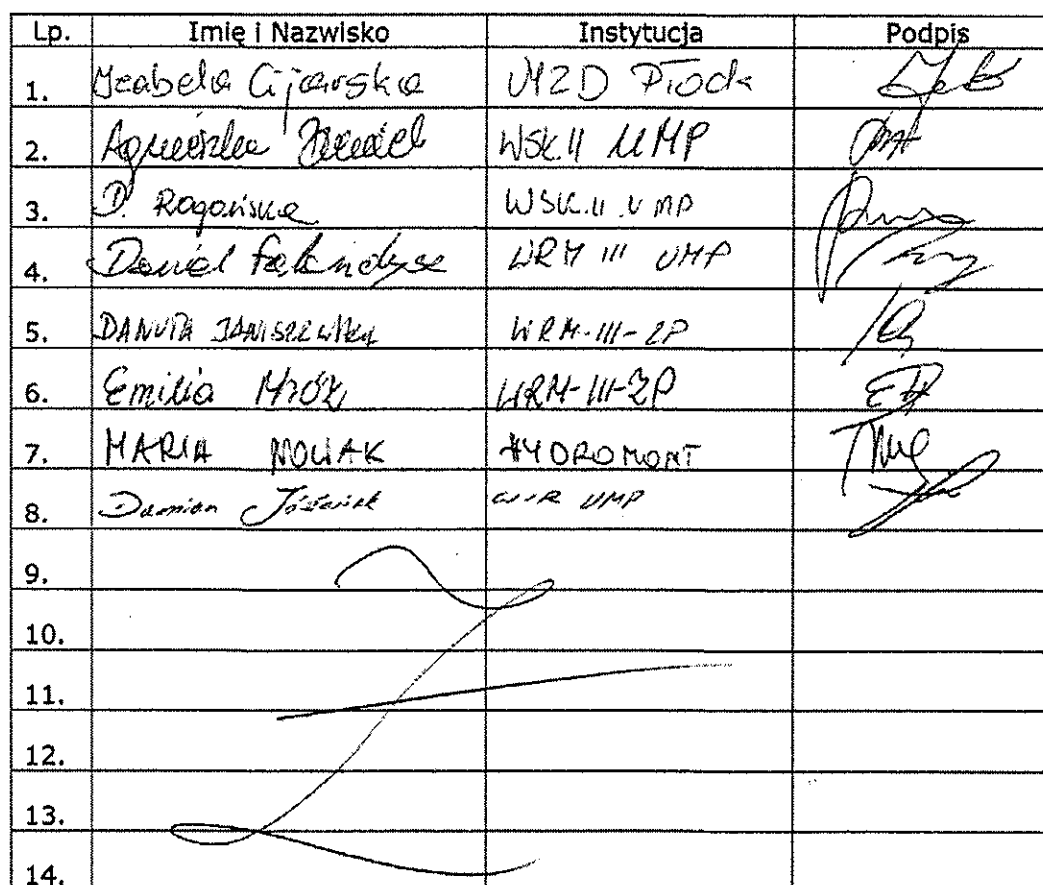 Lp. Imię i Nazwisko Instytucja Podpis
1. Izabela Cijarska MZD Płock
2. Agnieszka WSK.II UMP
3. D. Rogońska WSK.II.UMP
4. Daniel WRM III UMP
5. DANUTA JANISZEWSKA WRM-III-ZP
6. Emilia Mróz WRM-III-ZP
7. MARIA NOWAK HYDROMONT
8. Damian Jóźwiak WIR UMP
9.
10.
11.
12.
13.
14.